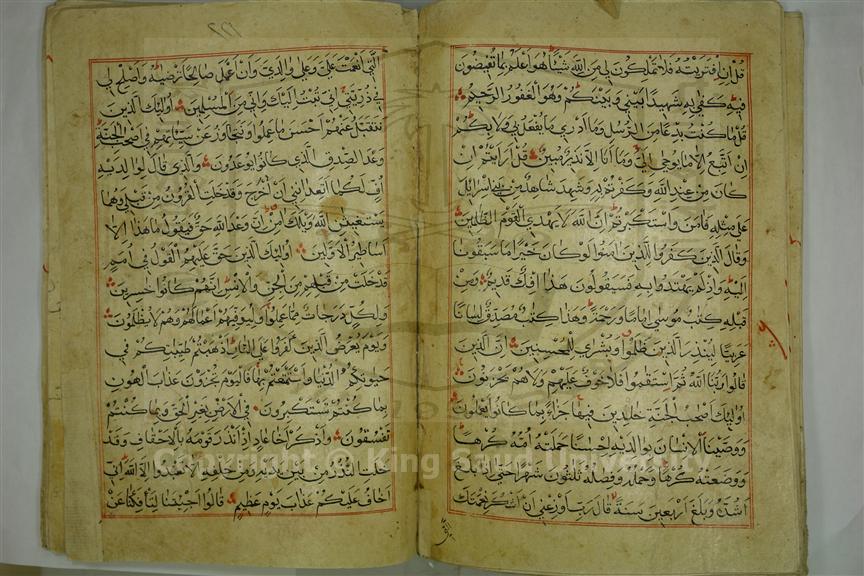 قُلْ اِنِ افْتَرَيْتُهُ فَلَا تَمْلِكُونَ لِي مِنَ اللهِ شَيْئًا هُوَ اَعْلَمُ بِمَا تُفِيضُونَ
فِيهِ كَفٰى بِهِ شَهِيدًا بَيْنِي وَبَيْنَكُمْ وَهُوَ الْغَفُورُ الرَّحِيمُ
قُلْ مَا كُنْتُ بِدْعًا مِنَ الرُّسُلِ وَمَا اَدْرِي مَا يُفْعَلُ بِي وَلَا بِكُمْ
اِنْ اَتَّبِعُ اِلَّا مَا يُوحٰى اِلَيَّ وَمَا اَنَا اِلَّا نَذِيرٌ مُبِينٌ قُلْ اَرَاَيْتُمْ اِنْ
كَانَ مِنْ عِنْدِ اللهِ وَكَفَرْتُمْ بِهِ وَشَهِدَ شَاهِدٌ مِنْ بَنِي اِسْرَائِلَ
عَلٰى مِثْلِهِ فَاٰمَنَ وَاسْتَكْبَرْتُمْ اِنَّ اللهَ لَا يَهْدِي الْقَوْمَ الظّٰلِمِينَ
وَقَالَ الَّذِينَ كَفَرُوا لِلَّذِينَ اٰمَنُوا لَوْ كَانَ خَيْرًا مَا سَبَقُونَا
اِلَيْهِ وَاِذْ لَمْ يَهْتَدُوا بِهِ فَسَيَقُولُونَ هٰذَا اِفْكٌ قَدِيمٌ وَمِنْ
قَبْلِهِ كِتٰبُ مُوسٰى اِمَامًا وَرَحْمَةً وَهٰذَا كِتٰبٌ مُصَدِّقٌ لِسَانًا
عَرَبِيًّا لِيُنْذِرَ الَّذِينَ ظَلَمُوا وَبُشْرٰى لِلْمُحْسِنِينَ اِنَّ الَّذِينَ
قَالُوا رَبُّنَا اللهُ ثُمَّ اسْتَقٰمُوا فَلَا خَوْفٌ عَلَيْهِمْ وَلَا هُمْ يَحْزَنُونَ
اُولٰئِكَ اَصْحٰبُ الْجَنَّةِ خٰلِدِينَ فِيهَا جَزَاءً بِمَا كَانُوا يَعْمَلُونَ
وَوَصَّيْنَا الْاِنْسَانَ بِوَالِدَيْهِ اِحْسٰنًا حَمَلَتْهُ اُمُّهُ كُرْهًا
وَوَضَعَتْهُ كُرْهًا وَحَمْلُهُ وَفِصٰلُهُ ثَلٰثُونَ شَهْرًا حَتّٰى اِذَا بَلَغَ
اَشُدَّهُ وَبَلَغَ اَرْبَعِينَ سَنَةً قَالَ رَبِّ اَوْزِعْنِي اَنْ اَشْكُرَ نِعْمَتَكَ
الَّتِي اَنْعَمْتَ عَلَيَّ وَعَلٰى وَالِدَيَّ وَاَنْ اَعْمَلَ صَالِحًا تَرْضٰيهُ وَاَصْلِحْ لِي
فِي ذُرِّيَّتِي اِنِّي تُبْتُ اِلَيْكَ وَاِنِّي مِنَ الْمُسْلِمِينَ اُولٰئِكَ الَّذِينَ
نَتَقَبَّلُ عَنْهُمْ اَحْسَنَ مَا عَمِلُوا وَنَتَجَاوَزُ عَنْ سَيِّاٰتِهِمْ فِي اَصْحٰبِ الْجَنَّةِ
وَعْدَ الصِّدْقِ الَّذِي كَانُوا يُوعَدُونَ وَالَّذِي قَالَ لِوَالِدَيْهِ
اُفٍّ لَكُمَا اَتَعِدَانِنِي اَنْ اُخْرَجَ وَقَدْ خَلَتِ الْقُرُونُ مِنْ قَبْلِي وَهُمَا
يَسْتَغِيثٰنِ اللهَ وَيْلَكَ اٰمِنْ اِنَّ وَعْدَ اللهِ حَقٌّ فَيَقُولُ مَا هٰذَا اِلَّا
اَسَاطِيرُ الْاَوَّلِينَ اُولٰئِكَ الَّذِينَ حَقَّ عَلَيْهِمُ الْقَوْلُ فِي اُمَمٍ
قَدْ خَلَتْ مِنْ قَبْلِهِمْ مِنَ الْجِنِّ وَالْاِنْسِ اِنَّهُمْ كَانُوا خٰسِرِينَ
وَلِكُلٍّ دَرَجَاتٌ مِمَّا عَمِلُوا وَلِيُوَفِّيَهُمْ اَعْمَالَهُمْ وَهُمْ لَا يُظْلَمُونَ
وَيَوْمَ يُعْرَضُ الَّذِينَ كَفَرُوا عَلَى النَّارِ اَذْهَبْتُمْ طَيِّبٰتِكُمْ فِي
حَيٰوتِكُمُ الدُّنْيَا وَاسْتَمْتَعْتُمْ بِهَا فَالْيَوْمَ تُجْزَوْنَ عَذَابَ الْهُونِ
بِمَا كُنْتُمْ تَسْتَكْبِرُونَ فِي الْاَرْضِ بِغَيْرِ الْحَقِّ وَبِمَا كُنْتُمْ
تَفْسُقُونَ وَاذْكُرْ اَخَا عَادٍ اِذْ اَنْذَرَ قَوْمَهُ بِالْاَحْقَافِ وَقَدْ
خَلَتِ النُّذُرُ مِنْ بَيْنِ يَدَيْهِ وَمِنْ خَلْفِهِ اَلَّا تَعْبُدُوا اِلَّا اللهَ اِنِّي
اَخَافُ عَلَيْكُمْ عَذَابَ يَوْمٍ عَظِيمٍ قَالُوا اَجِئْتَنَا لِتَاْفِكَنَا عَنْ
Copyright © King Saud University